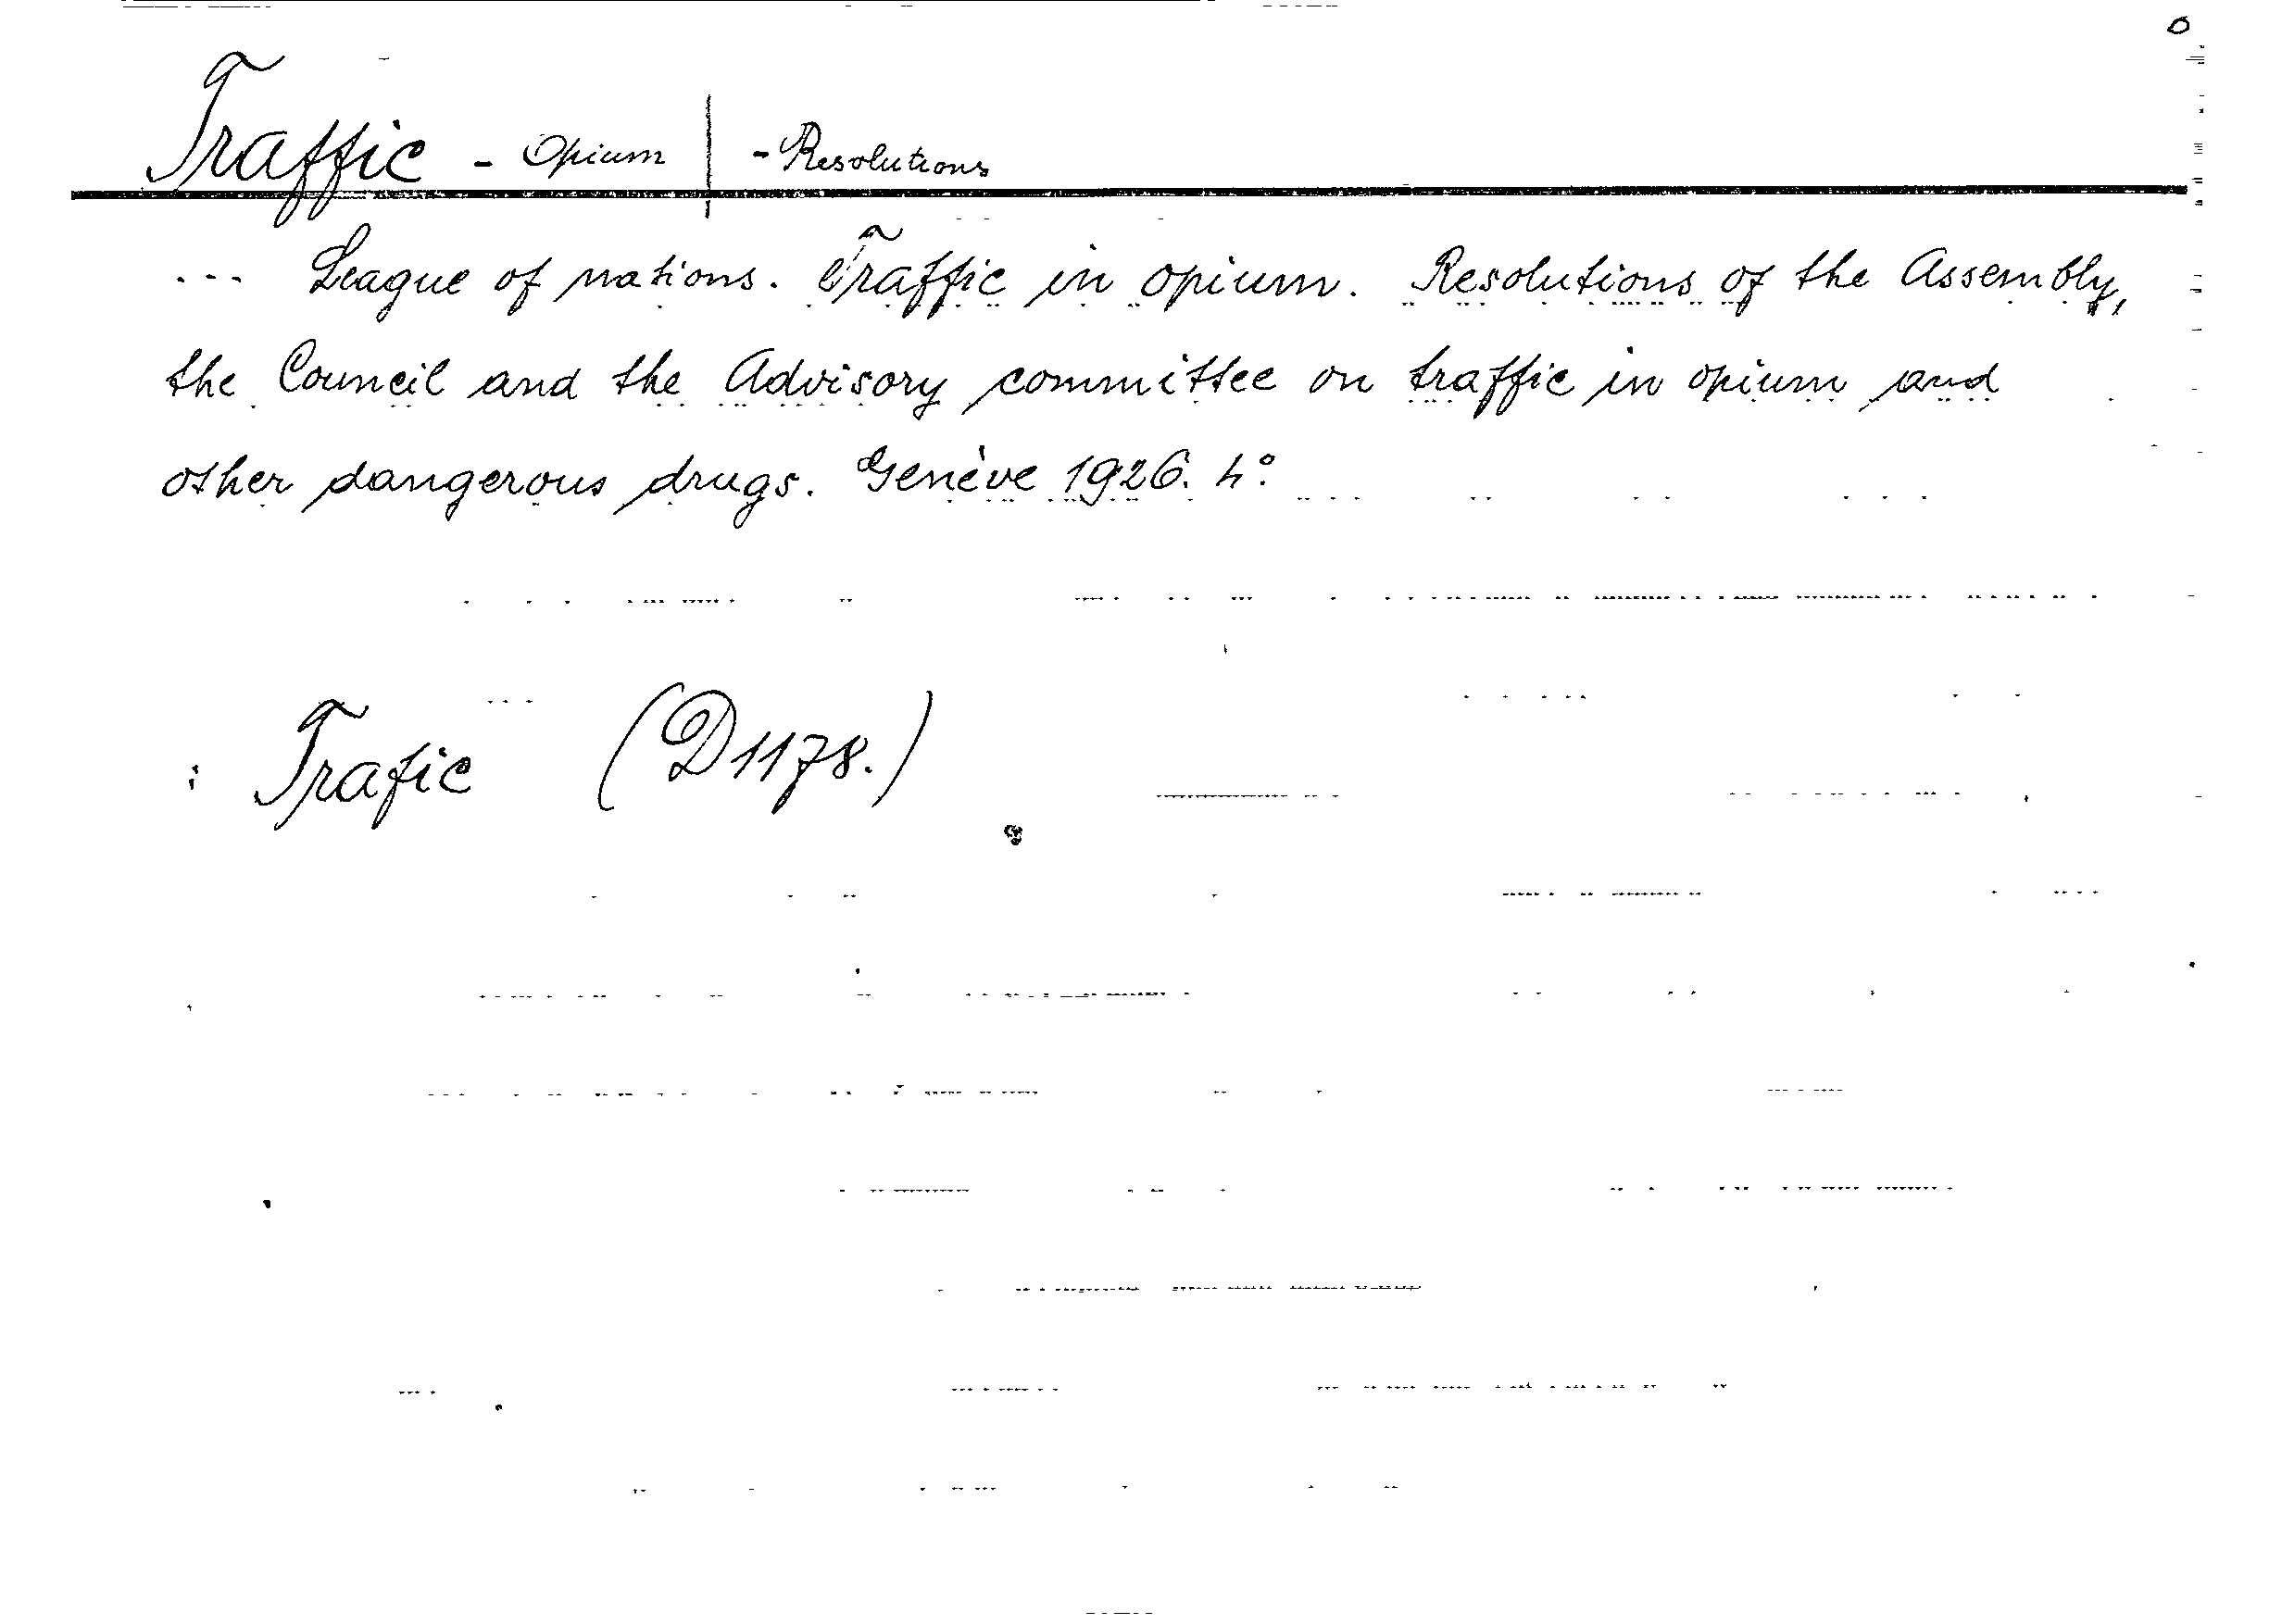 Traffic - Opium | - Resolutions
--- League of nations. Traffic in opium. Resolutions of the Assembly,
the Council and the Advisory committee on traffic in opium and
other dangerous drugs. Genève 1926. 4°.
: Trafic (D1178.)